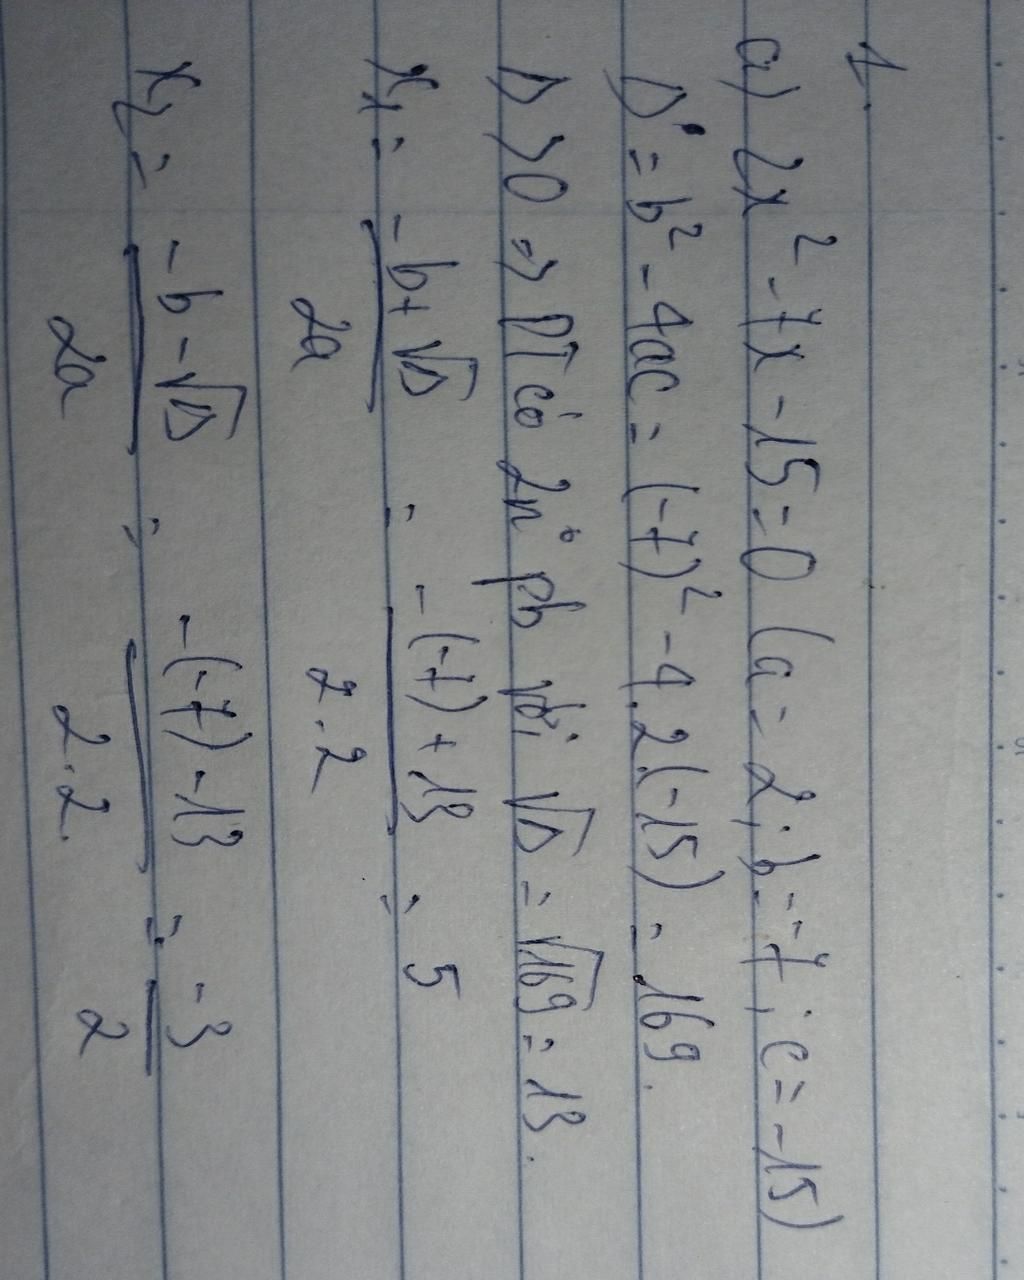 1.
a) 2x² - 7x - 15 = 0 (a = 2; b = -7; c = -15)
Δ = b² - 4ac = (-7)² - 4.2.(-15) = 169.
Δ > 0 => PT có 2n° pb với √Δ = √169 = 13.
x₁ = (-b + √Δ)/(2a) = (-(-7) + 13)/(2.2) = 5
x₂ = (-b - √Δ)/(2a) = (-(-7) - 13)/(2.2.) = -3/2